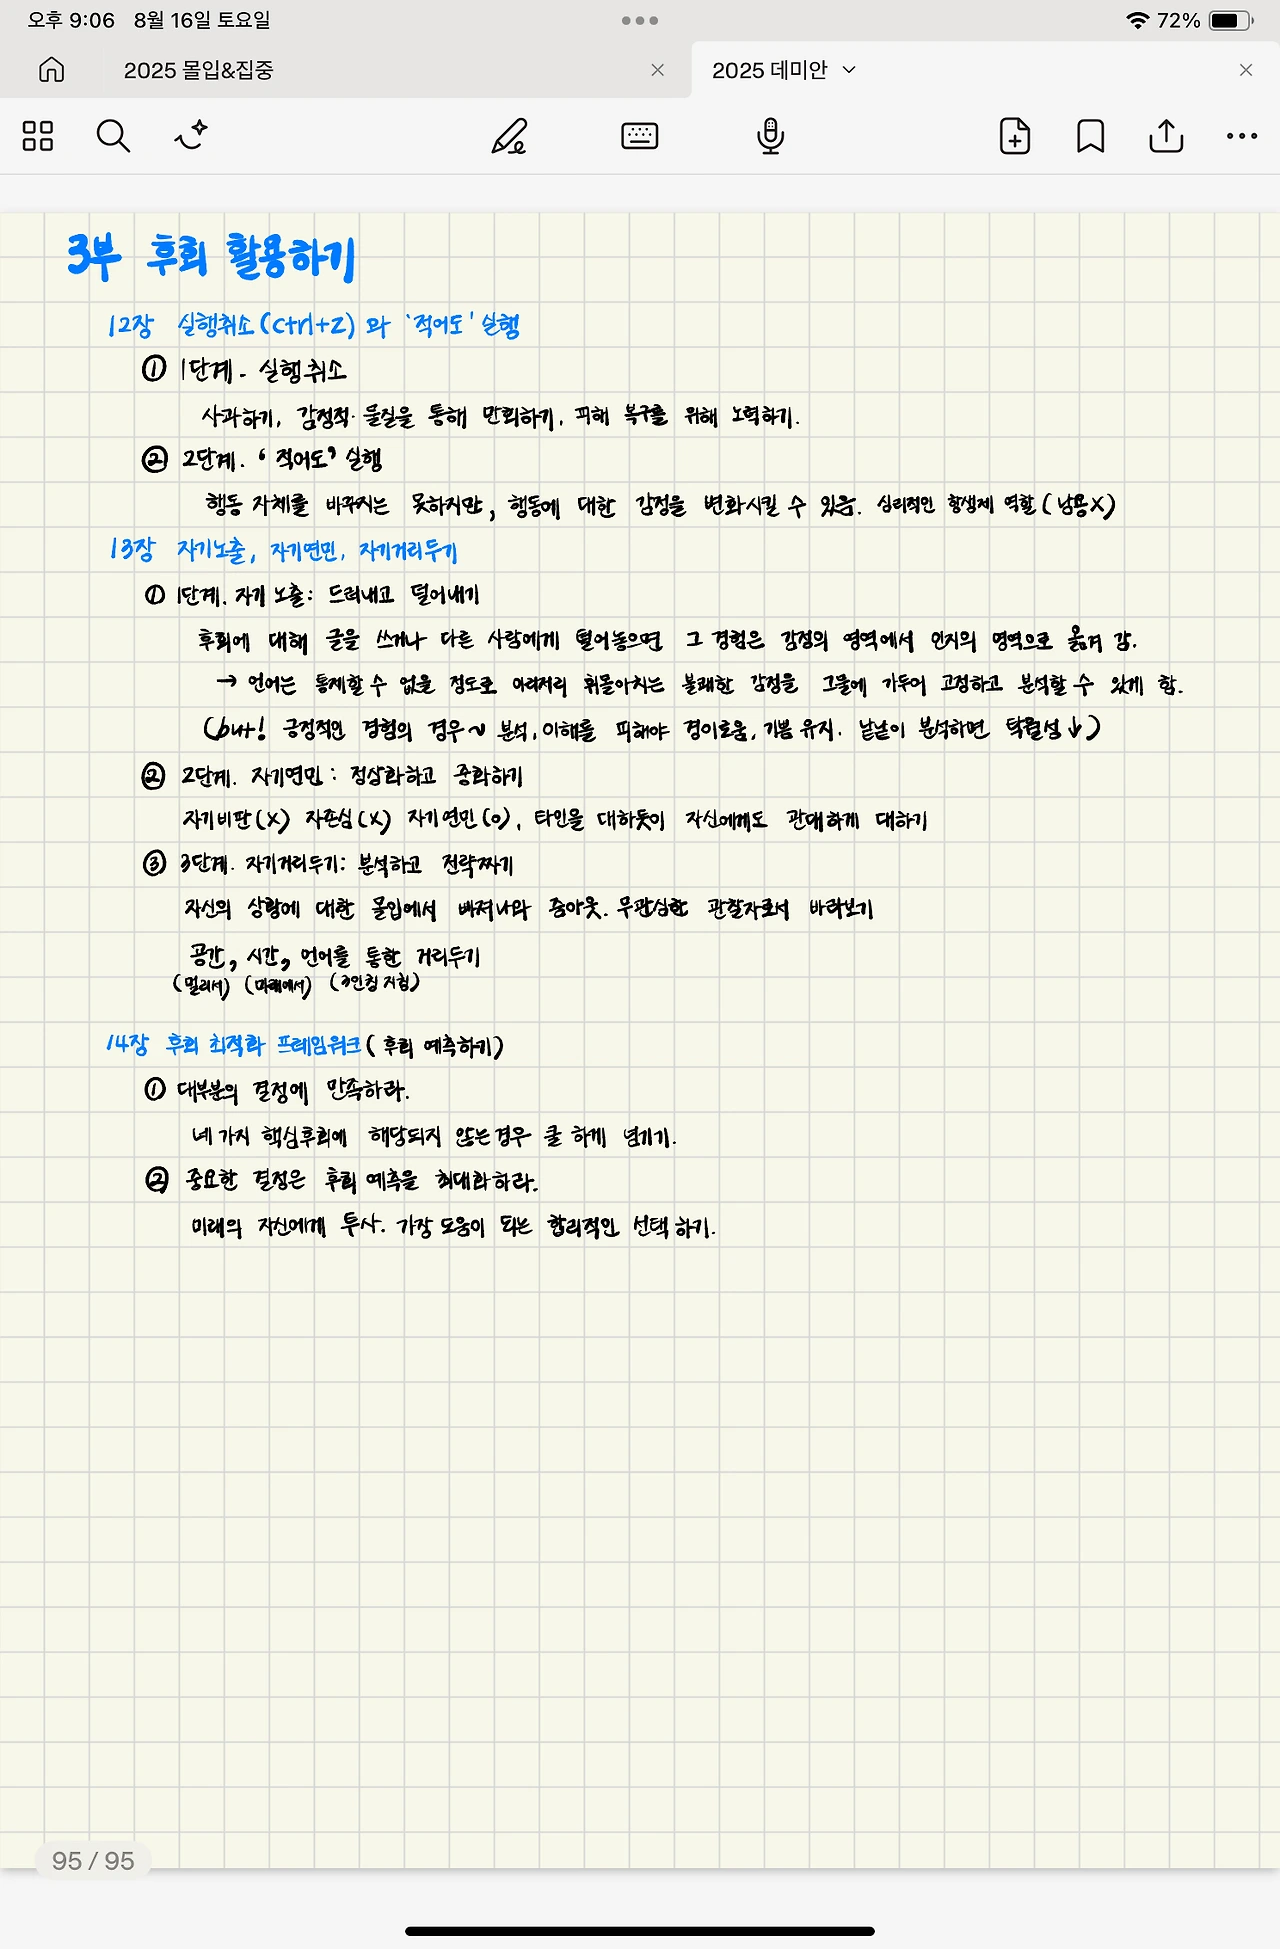 오후 9:06 8월 16일 토요일
72%
2025 몰입&집중
2025 데미안
3부 후회 활용하기
12장 실행취소(ctrl+z) 와 '적어도' 실행
① 1단계. 실행취소
사과하기, 감정적·물질을 통해 만회하기, 피해 복구를 위해 노력하기.
② 2단계. '적어도' 실행
행동 자체를 바꾸지는 못하지만, 행동에 대한 감정을 변화시킬 수 있음. 심리적인 항생제 역할 (남용X)
13장 자기노출, 자기연민, 자기거리두기
① 1단계. 자기 노출: 드러내고 덜어내기
후회에 대해 글을 쓰거나 다른 사람에게 털어놓으면 그 경험은 감정의 영역에서 인지의 영역으로 옮겨 감.
→ 언어는 통제할 수 없을 정도로 이리저리 휘몰아치는 불쾌한 감정을 그물에 가두어 고정하고 분석할 수 있게 함.
(but! 긍정적인 경험의 경우~ 분석, 이해를 피해야 경이로움, 기쁨 유지. 낱낱이 분석하면 탁월성↓)
② 2단계. 자기연민 : 정상화하고 중화하기
자기비판(X) 자존심(X) 자기연민(O), 타인을 대하듯이 자신에게도 관대하게 대하기
③ 3단계. 자기거리두기: 분석하고 전략짜기
자신의 상황에 대한 몰입에서 빠져나와 줌아웃. 무관심한 관찰자로서 바라보기
공간, 시간, 언어를 통한 거리두기
(멀리서) (미래에서) (3인칭 지칭)
14장 후회 최적화 프레임워크 (후회 예측하기)
① 대부분의 결정에 만족하라.
네 가지 핵심후회에 해당되지 않는 경우 쿨 하게 넘기기.
② 중요한 결정은 후회 예측을 최대화하라.
미래의 자신에게 투사. 가장 도움이 되는 합리적인 선택 하기.
95 / 95